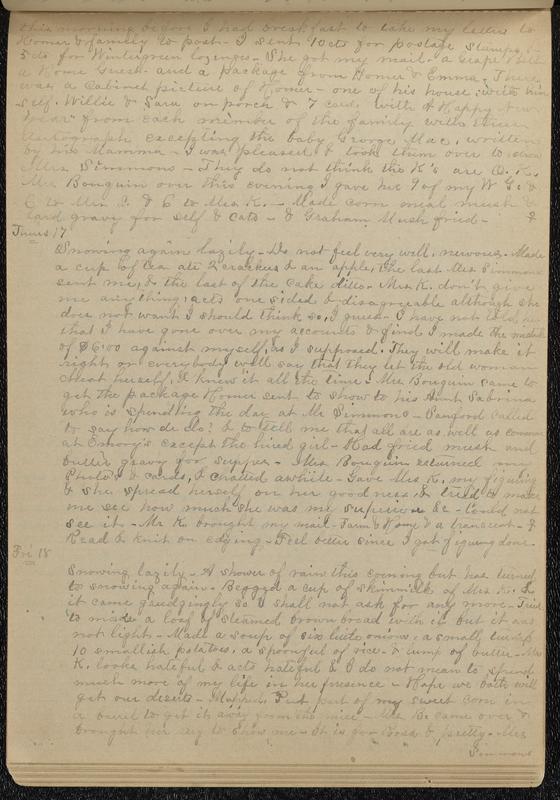 this morning before I had breakfast to take my letters to
Homer & family to post. I sent 10 cts for postage stamps, &
5 cts for Wintergreen lozenges. She got my mail - a Grape Belt
a Home Guest and a package from Homer & Emma. There
was a Cabinet picture of Homer - one of his house with him
self. Willie & Sara on porch & 7 cards with A Happy New
Year" from each member of the family with their
Autograph excepting the baby George Mac, written
by his Mamma - I was pleased & took them over to show
Mrs Simmons - They do not think the K's are O. K.
Mrs Bouquin over this evening I gave her 9 of my W G. &
6 to Mrs S. & 6 to Mrs K. - Made corn meal mush &
lard gravy for self & cats - & Graham Mush fried - &
Thurs 17
Snowing again lazily - Do not feel very well, nervous - Made
a cup of tea ate 2 crackers & an apple, the last Mrs Simmons
sent me, & the last of the cake ditto - Mrs K. don't give
me anything; acts one sided & disagreeable although she
does not want I should think so, I guess - I have not told her
that I have gone over my accounts & find I made the mistake
of $6.00 against myself, as I supposed. They will make it
right or everybody will say that they let the old woman
cheat herself, & knew it all the time - Mrs Bouquin came to
get the package Homer sent to show to his Aunt Sabrina
who is spending the day at Mr Simmons - Sanford called
to say how de do! & to tell me that all are as well as common
at Emory's except the hired girl - Had fried mush and
butter gravy for supper - Mrs Bouquin returned my
Photo's & cards, & chatted awhile - Gave Mrs K. my figuring
& she spread herself on her goodness, & tried to make
me see how much she was my superior &c - Could not
see it - Mr K. brought my mail - Farm & Home & a transcript - I
Read & knit on edging - Feel better since I got figuring done -
Fri 18
Snowing lazily - A shower of rain this evening but has turned
to snowing again - Begged a cup of skimmilk of Mrs K. &
it came grudgingly so I shall not ask for any more - Tried
to make a loaf of steamed brown bread with it but it was
not light - Made a soup of six little onions, a small turnip
10 smallish potatoes, a spoonful of rice & lump of butter - Mrs
K. looks hateful & acts hateful & I do not mean to spend
much more of my life in her presence - Hope we both will
get our deserts - Mopped. Put part of my sweet corn in
a barrel to get it away from the mice - Mrs B. came over &
brought her rug to show me - It is for Rosa & pretty - Mrs
Simmons